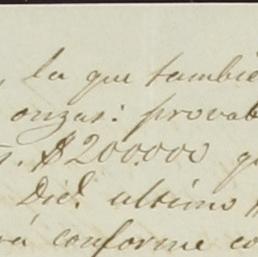 , la que tambie
onzas: provab
s. $200.000 q
Dic? ultimo
rá conforme co